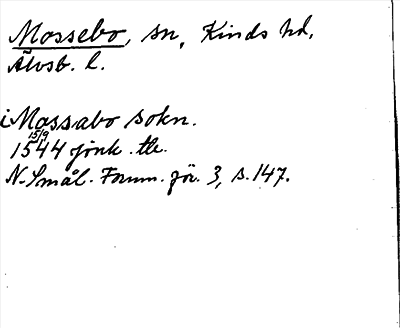 Mossebo, sn, Kinds hd,
Älvsb. l.
i Mossabo sokn.
15/9
1544 jönk. tb.
N. Smål. Fornm. för. 3, s. 147.